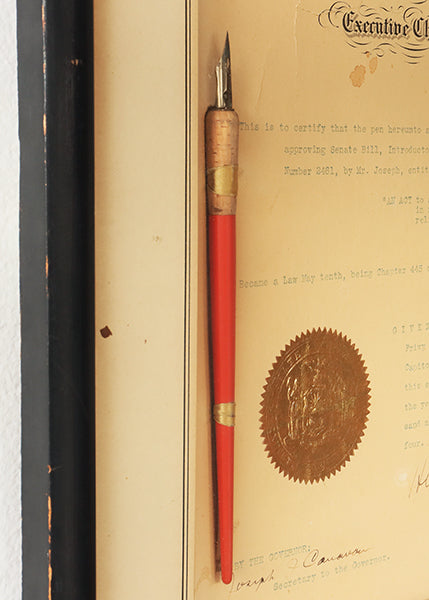 Executive C
This is to certify that the pen hereunto
approving Senate Bill, Introductor
Number 2461, by Mr. Joseph, entit
"AN ACT to
in
rel
Became a Law May tenth, being Chapter 445
G I V E N
Privy
Capito
this
the ye
sand
four.
BY THE GOVERNOR:
Joseph J Canavan
Secretary to the Governor.